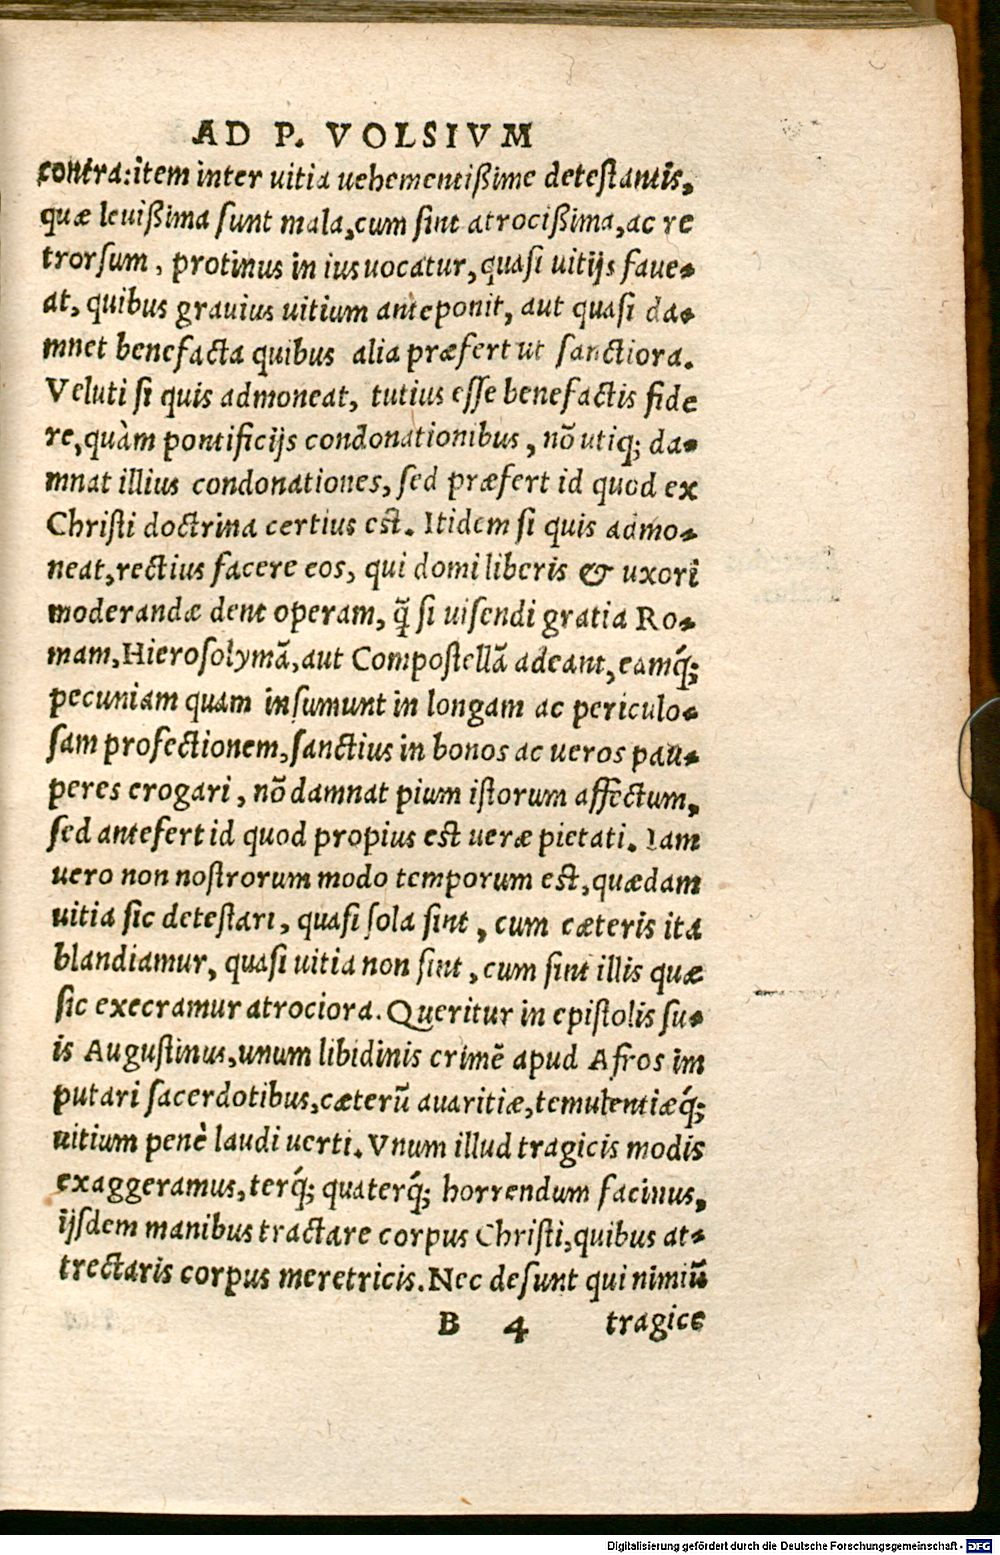 AD P. VOLSIVM
contra: item inter uitia uehementißime detestantis,
quæ leuißima sunt mala, cum sint atrocißima, ac re
trorsum, protinus in ius uocatur, quasi uitijs faue-
at, quibus grauius uitium anteponit, aut quasi da-
mnet benefacta quibus alia præfert ut sanctiora.
Veluti si quis admoneat, tutius esse benefactis fide
re, quàm pontificijs condonationibus, nõ utiq; da-
mnat illius condonationes, sed præfert id quod ex
Christi doctrina certius est. Itidem si quis admo-
neat, rectius facere eos, qui domi liberis & uxori
moderandæ dent operam, q̃ si uisendi gratia Ro-
mam, Hierosolymã, aut Compostellã adeant, eamq́;
pecuniam quam insumunt in longam ac periculo-
sam profectionem, sanctius in bonos ac ueros pau-
peres erogari, nõ damnat pium istorum affectum,
sed antefert id quod propius est ueræ pietati. Iam
uero non nostrorum modo temporum est, quædam
uitia sic detestari, quasi sola sint, cum cæteris ita
blandiamur, quasi uitia non sint, cum sint illis quæ
sic execramur atrociora. Queritur in epistolis su-
is Augustinus, unum libidinis crimẽ apud Afros im
putari sacerdotibus, cæterũ auaritiæ, temulentiæq́;
uitium penè laudi uerti. Vnum illud tragicis modis
exaggeramus, terq́; quaterq́; horrendum facinus,
ijsdem manibus tractare corpus Christi, quibus at-
trectaris corpus meretricis. Nec desunt qui nimiũ
B 4 tragice
Digitalisierung gefördert durch die Deutsche Forschungsgemeinschaft - DFG